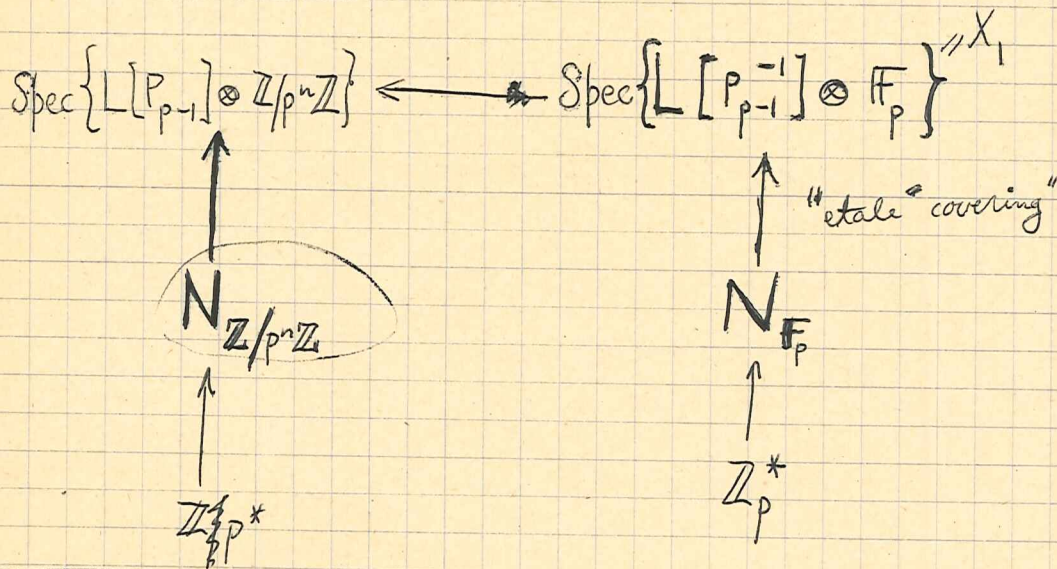 Spec{L[P_{p-1}] ⊗ ℤ/pⁿℤ} ← Spec{L[P_{p-1}^{-1}] ⊗ 𝔽_p} " X₁
"etale" covering"
N_{ℤ/pⁿℤ} N_{𝔽_p}
ℤ_p^* ℤ_p^*